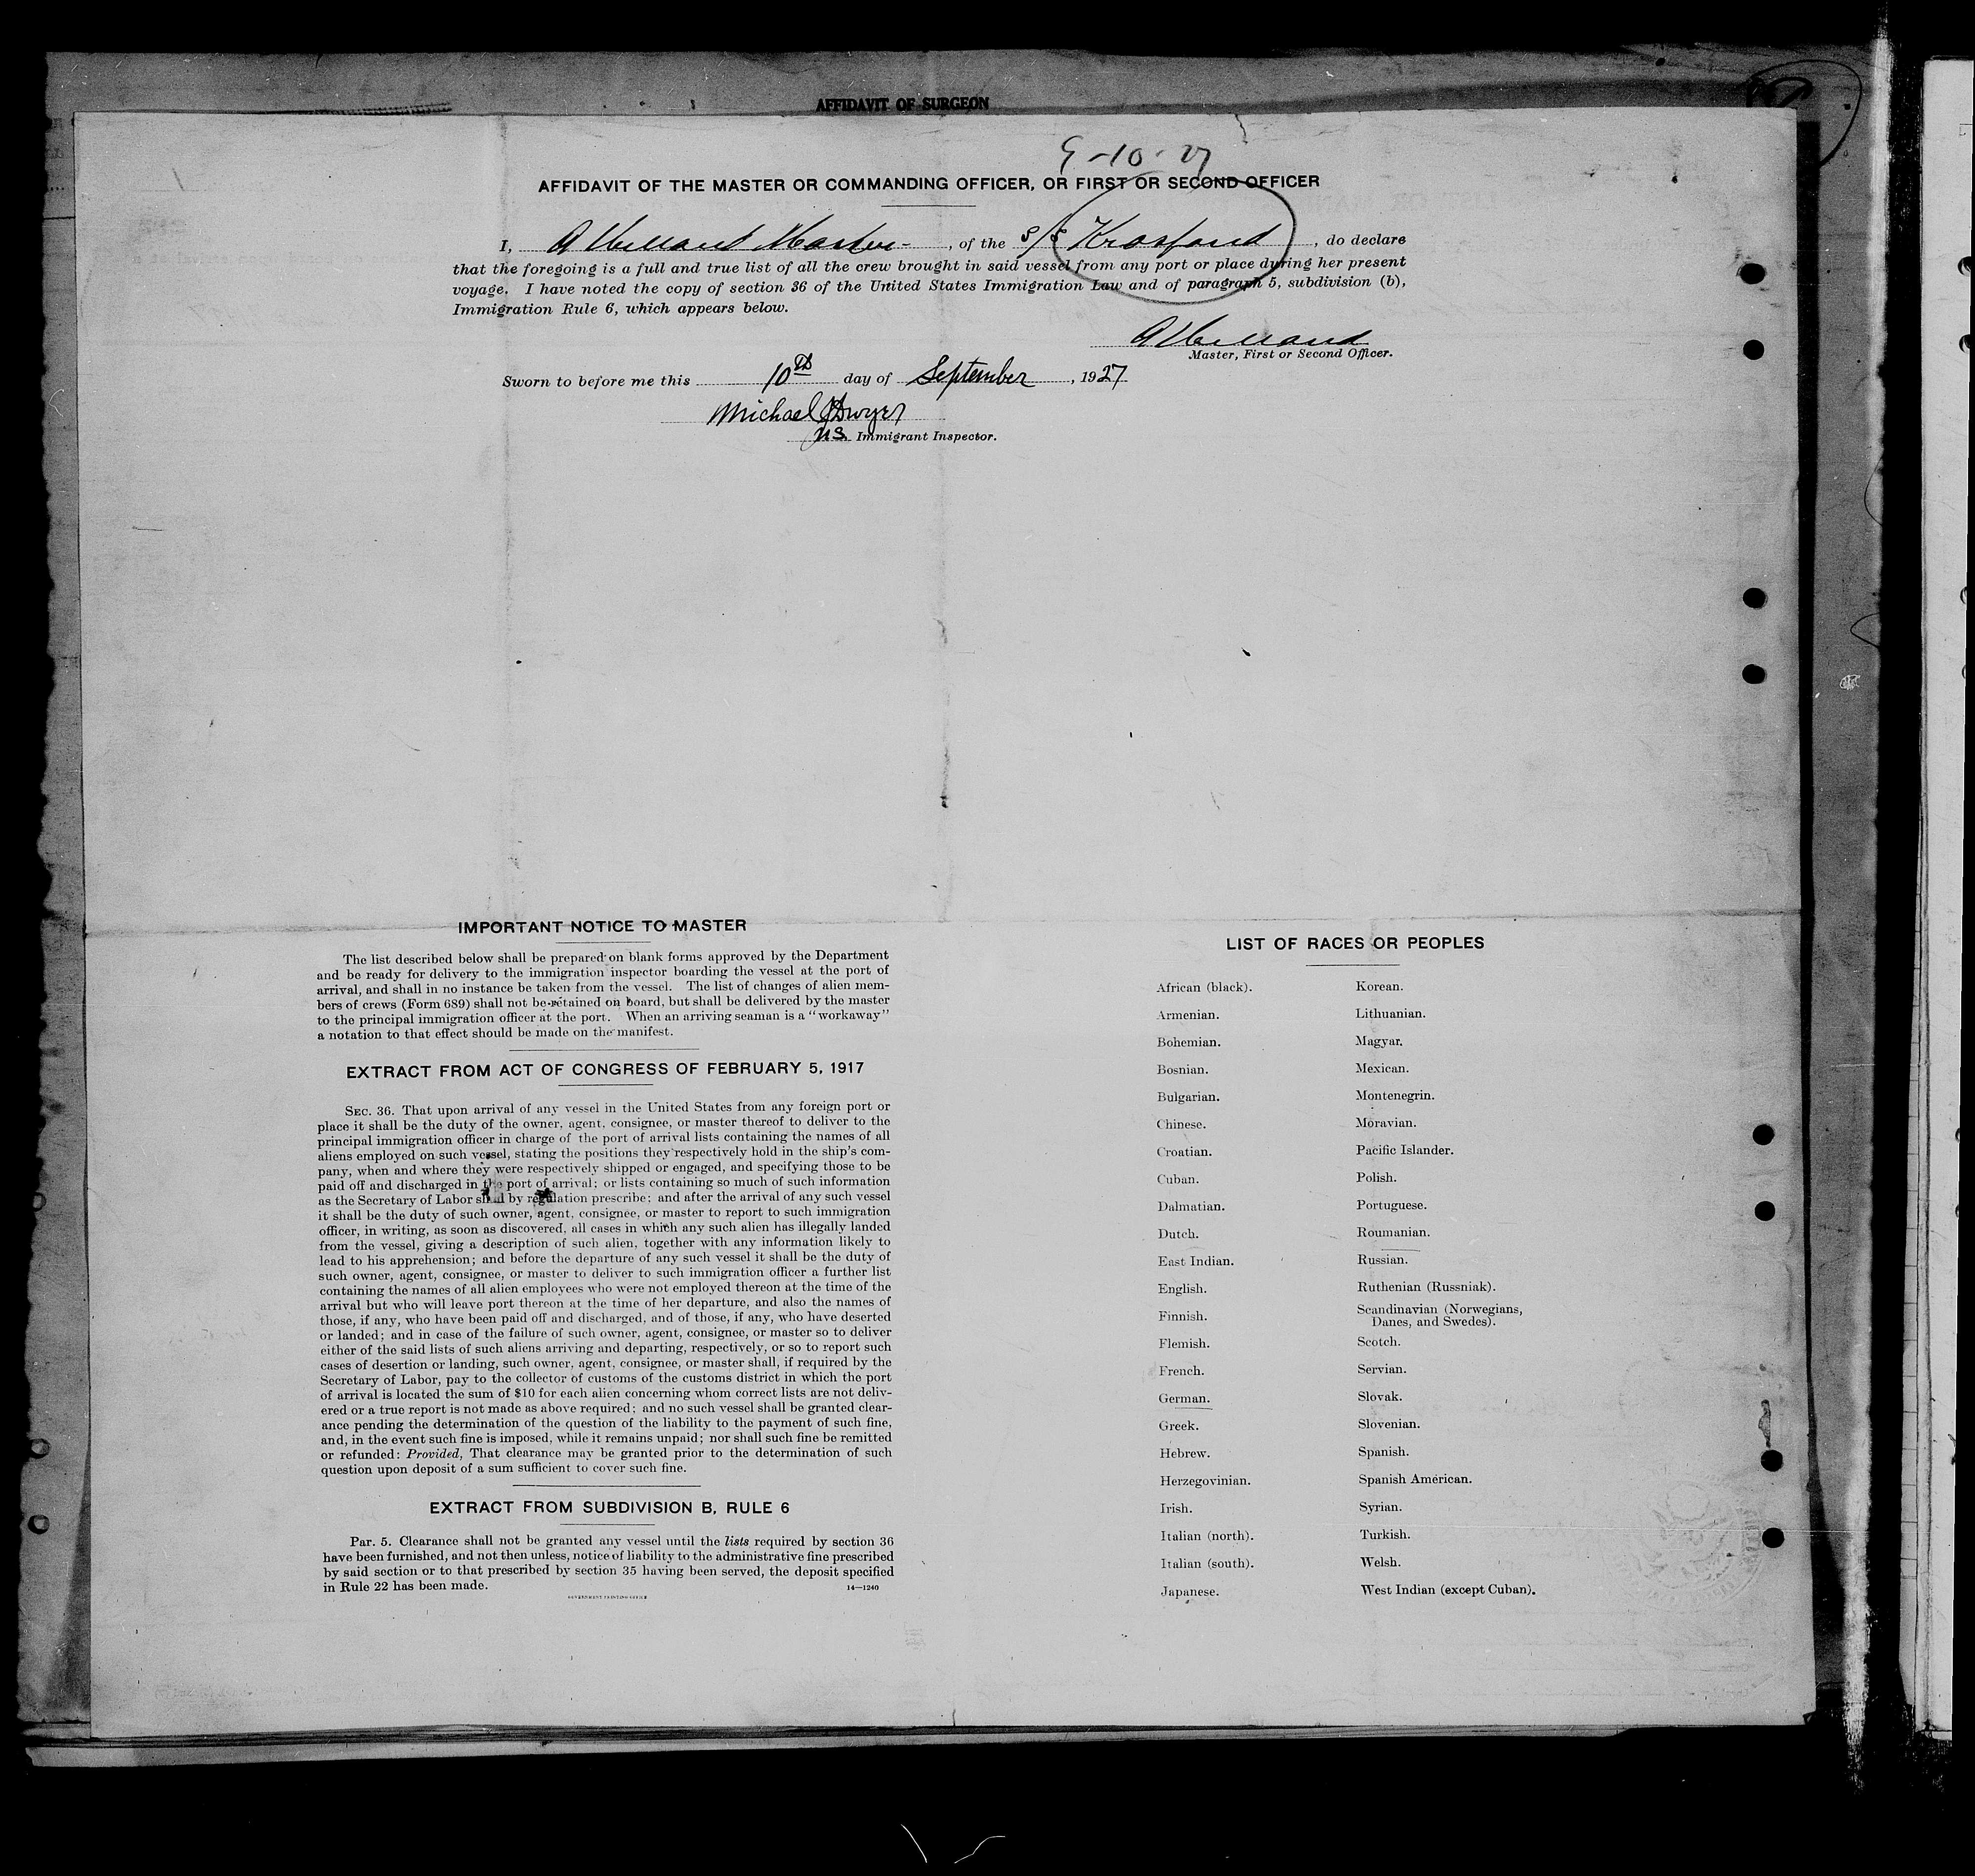 AFFIDAVIT OF SURGEON
9-10-27
AFFIDAVIT OF THE MASTER OR COMMANDING OFFICER, OR FIRST OR SECOND OFFICER
I, Master, of the S/S Krosfond, do declare
that the foregoing is a full and true list of all the crew brought in said vessel from any port or place during her present
voyage. I have noted the copy of section 36 of the United States Immigration Law and of paragraph 5, subdivision (b),
Immigration Rule 6, which appears below.
Master, First or Second Officer.
Sworn to before me this 10th day of September, 1927
Michael J Dwyer
U.S. Immigrant Inspector.
IMPORTANT NOTICE TO MASTER
The list described below shall be prepared on blank forms approved by the Department
and be ready for delivery to the immigration inspector boarding the vessel at the port of
arrival, and shall in no instance be taken from the vessel. The list of changes of alien mem-
bers of crews (Form 689) shall not be retained on board, but shall be delivered by the master
to the principal immigration officer at the port. When an arriving seaman is a "workaway"
a notation to that effect should be made on the manifest.
EXTRACT FROM ACT OF CONGRESS OF FEBRUARY 5, 1917
SEC. 36. That upon arrival of any vessel in the United States from any foreign port or
place it shall be the duty of the owner, agent, consignee, or master thereof to deliver to the
principal immigration officer in charge of the port of arrival lists containing the names of all
aliens employed on such vessel, stating the positions they respectively hold in the ship's com-
pany, when and where they were respectively shipped or engaged, and specifying those to be
paid off and discharged in the port of arrival; or lists containing so much of such information
as the Secretary of Labor shall by regulation prescribe; and after the arrival of any such vessel
it shall be the duty of such owner, agent, consignee, or master to report to such immigration
officer, in writing, as soon as discovered, all cases in which any such alien has illegally landed
from the vessel, giving a description of such alien, together with any information likely to
lead to his apprehension; and before the departure of any such vessel it shall be the duty of
such owner, agent, consignee, or master to deliver to such immigration officer a further list
containing the names of all alien employees who were not employed thereon at the time of the
arrival but who will leave port thereon at the time of her departure, and also the names of
those, if any, who have been paid off and discharged, and of those, if any, who have deserted
or landed; and in case of the failure of such owner, agent, consignee, or master so to deliver
either of the said lists of such aliens arriving and departing, respectively, or so to report such
cases of desertion or landing, such owner, agent, consignee, or master shall, if required by the
Secretary of Labor, pay to the collector of customs of the customs district in which the port
of arrival is located the sum of $10 for each alien concerning whom correct lists are not deliv-
ered or a true report is not made as above required; and no such vessel shall be granted clear-
ance pending the determination of the question of the liability to the payment of such fine,
and, in the event such fine is imposed, while it remains unpaid; nor shall such fine be remitted
or refunded: Provided, That clearance may be granted prior to the determination of such
question upon deposit of a sum sufficient to cover such fine.
EXTRACT FROM SUBDIVISION B, RULE 6
Par. 5. Clearance shall not be granted any vessel until the lists required by section 36
have been furnished, and not then unless, notice of liability to the administrative fine prescribed
by said section or to that prescribed by section 35 having been served, the deposit specified
in Rule 22 has been made.
14—1240
GOVERNMENT PRINTING OFFICE
LIST OF RACES OR PEOPLES
African (black).
Armenian.
Bohemian.
Bosnian.
Bulgarian.
Chinese.
Croatian.
Cuban.
Dalmatian.
Dutch.
East Indian.
English.
Finnish.
Flemish.
French.
German.
Greek.
Hebrew.
Herzegovinian.
Irish.
Italian (north).
Italian (south).
Japanese.
Korean.
Lithuanian.
Magyar.
Mexican.
Montenegrin.
Moravian.
Pacific Islander.
Polish.
Portuguese.
Roumanian.
Russian.
Ruthenian (Russniak).
Scandinavian (Norwegians,
Danes, and Swedes).
Scotch.
Servian.
Slovak.
Slovenian.
Spanish.
Spanish American.
Syrian.
Turkish.
Welsh.
West Indian (except Cuban).